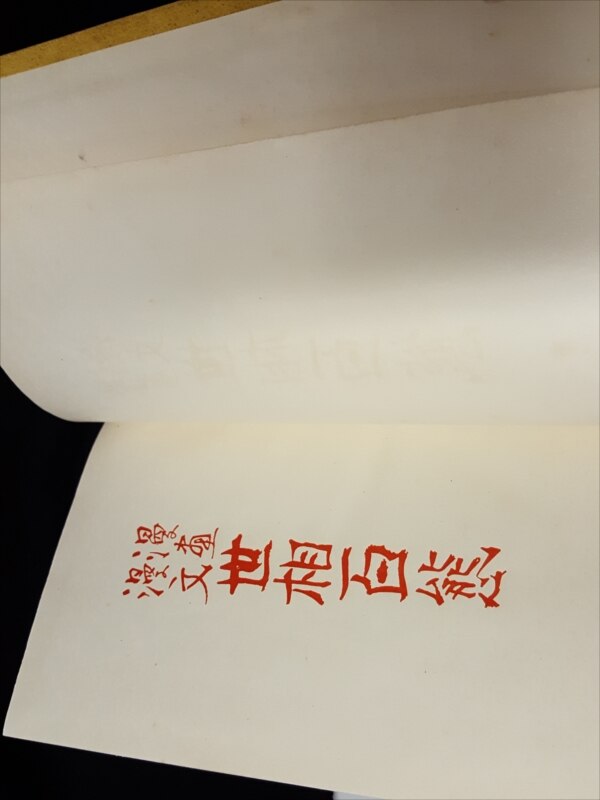 漫畫
漫文
世相百態